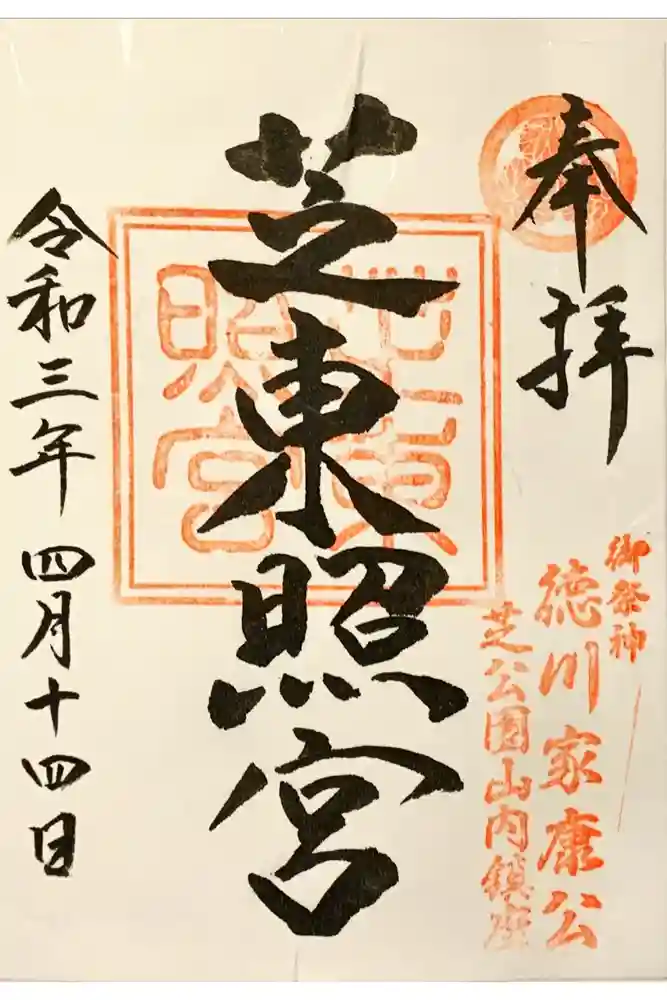 奉拝
御祭神
徳川家康公
芝公園山内鎮座
芝東照宮
芝東
照宮
令和三年四月十四日